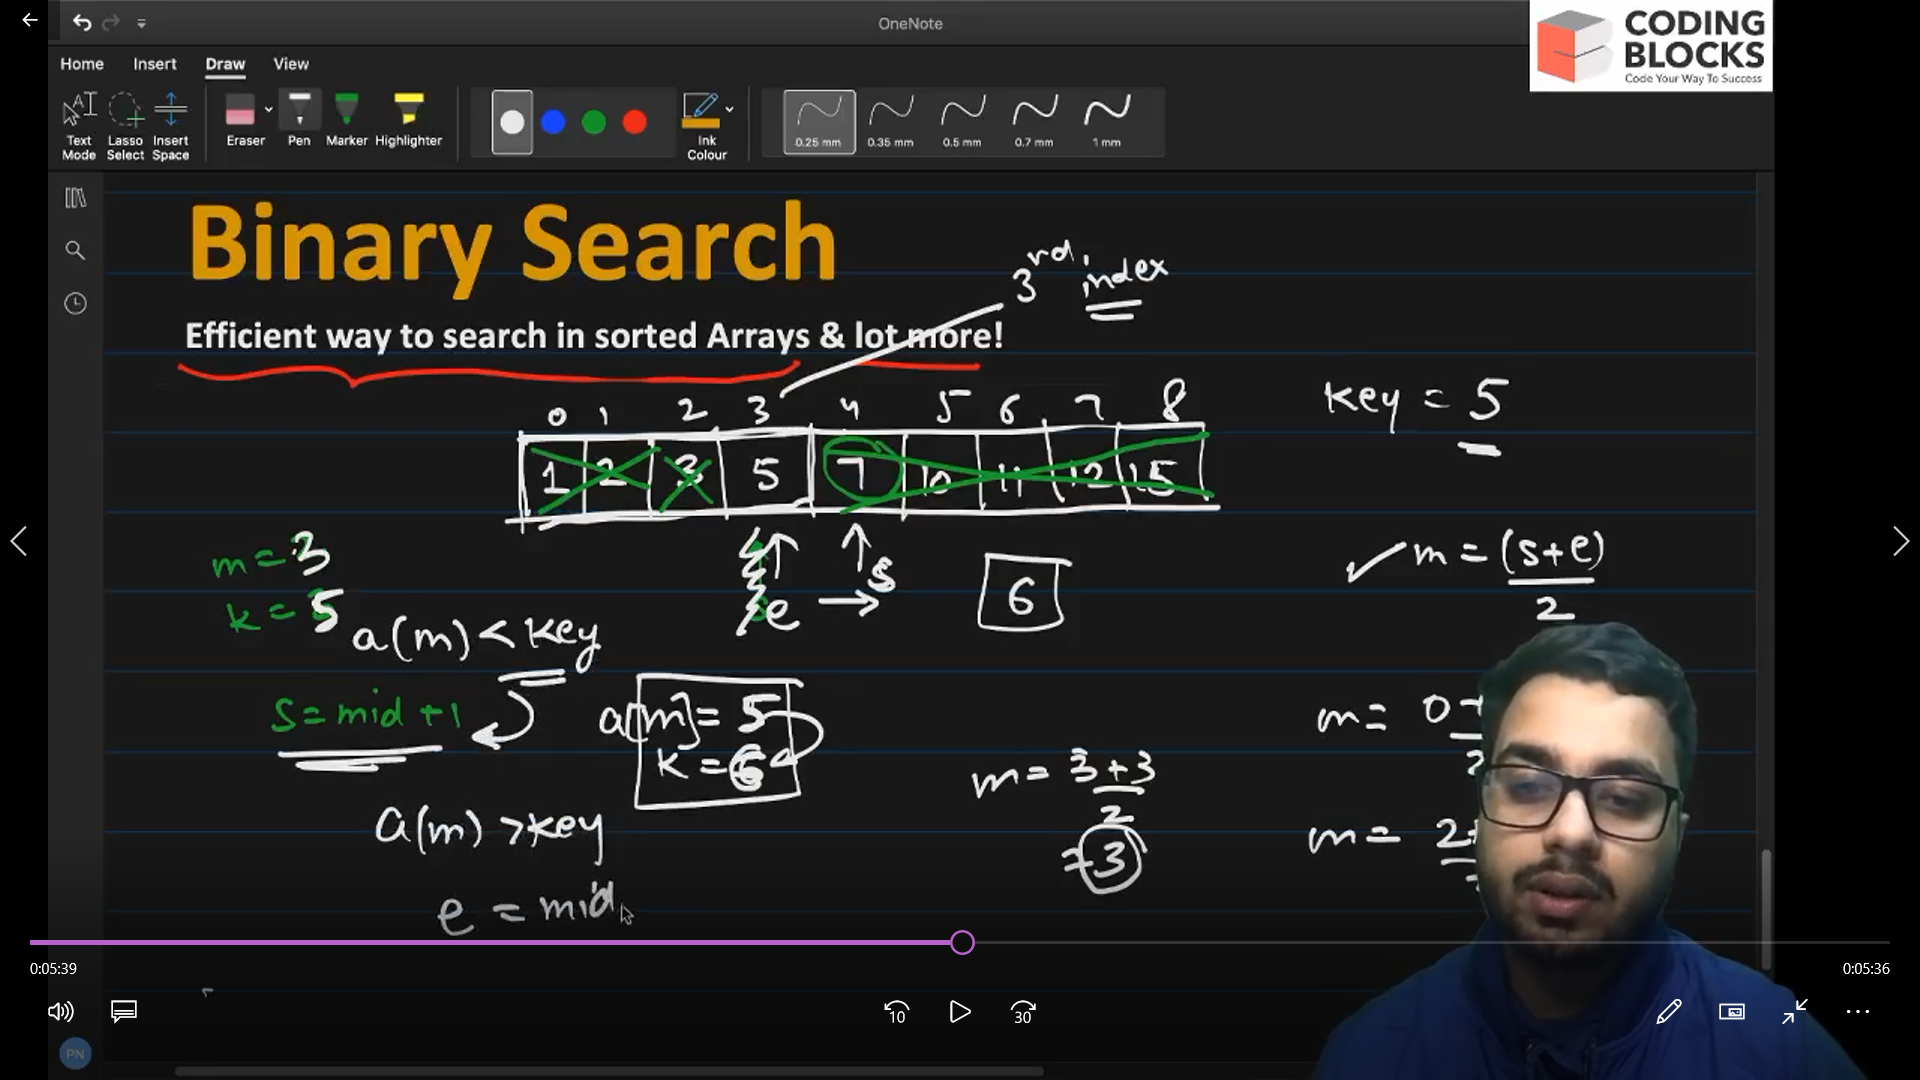 OneNote
CODING
BLOCKS
Code Your Way To Success
Home Insert Draw View
Text Mode
Lasso Select
Insert Space
Eraser
Pen
Marker
Highlighter
Ink Colour
0.25 mm
0.35 mm
0.5 mm
0.7 mm
1 mm
Binary Search
3rd index
Efficient way to search in sorted Arrays & lot more!
0 1 2 3 4 5 6 7 8
key = 5
1 2 3 5 7 10 11 12 15
m = 3
k = 5
e → s
6
m = (s+e)
2
a(m) < key
s = mid + 1
a[m] = 5
k = 6
m = 3+3
2
= 3
m = 0+
m = 2+
a(m) > key
e = mid
0:05:39
0:05:36
10
30
PN